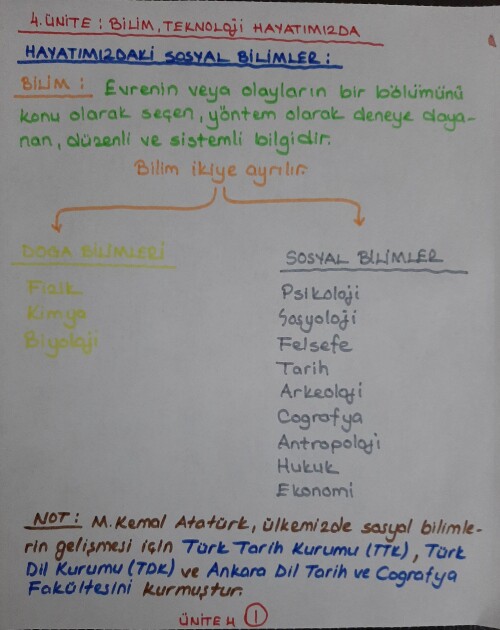 4. ÜNİTE : BİLİM, TEKNOLOJİ HAYATIMIZDA
HAYATIMIZDAKİ SOSYAL BİLİMLER :
BİLİM : Evrenin veya olayların bir bölümünü
konu olarak seçen, yöntem olarak deneye daya-
nan, düzenli ve sistemli bilgidir.
Bilim ikiye ayrılır.
DOĞA BİLİMLERİ
Fizik
Kimya
Biyoloji
SOSYAL BİLİMLER
Psikoloji
Sosyoloji
Felsefe
Tarih
Arkeoloji
Coğrafya
Antropoloji
Hukuk
Ekonomi
NOT : M. Kemal Atatürk, ülkemizde sosyal bilimle-
rin gelişmesi için Türk Tarih Kurumu (TTK), Türk
Dil Kurumu (TDK) ve Ankara Dil Tarih ve Coğrafya
Fakültesini kurmuştur.
ÜNİTE 4 1